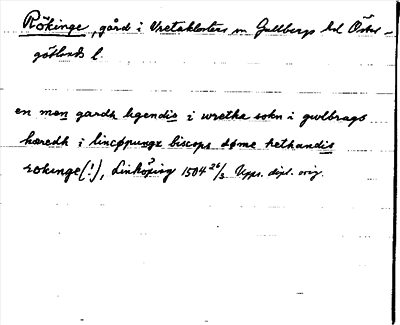 Rökinge, gård i Vretaklosters sn Gullbergs hd Öster-
götlands l.
en men gardh ligendis i wretha sokn i gwlbrags
hæredh i lincøpungx biscops døme hethandis
rokinge (!), Linköping 1504 26/3 Upps. dipl. orig.